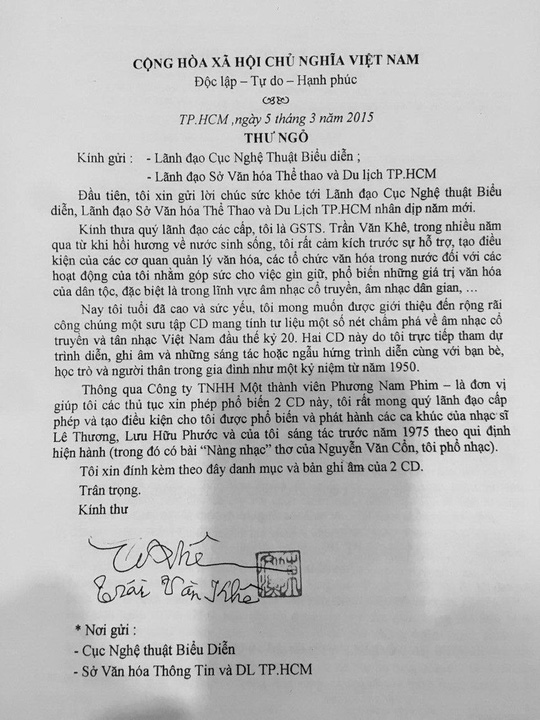 CỘNG HÒA XÃ HỘI CHỦ NGHĨA VIỆT NAM
Độc lập – Tự do – Hạnh phúc
TP.HCM ,ngày 5 tháng 3 năm 2015
THƯ NGỎ
Kính gửi : - Lãnh đạo Cục Nghệ Thuật Biểu diễn ;
- Lãnh đạo Sở Văn hóa Thể thao và Du lịch TP.HCM
Đầu tiên, tôi xin gửi lời chúc sức khỏe tới Lãnh đạo Cục Nghệ thuật Biểu
diễn, Lãnh đạo Sở Văn hóa Thể Thao và Du Lịch TP.HCM nhân dịp năm mới.
Kính thưa quý lãnh đạo các cấp, tôi là GSTS. Trần Văn Khê, trong nhiều năm
qua từ khi hồi hương về nước sinh sống, tôi rất cảm kích trước sự hỗ trợ, tạo điều
kiện của các cơ quan quản lý văn hóa, các tổ chức văn hóa trong nước đối với các
hoạt động của tôi nhằm góp sức cho việc gìn giữ, phổ biến những giá trị văn hóa
của dân tộc, đặc biệt là trong lĩnh vực âm nhạc cổ truyền, âm nhạc dân gian, …
Nay tôi tuổi đã cao và sức yếu, tôi mong muốn được giới thiệu đến rộng rãi
công chúng một sưu tập CD mang tính tư liệu một số nét chấm phá về âm nhạc cổ
truyền và tân nhạc Việt Nam đầu thế kỷ 20. Hai CD này do tôi trực tiếp tham dự
trình diễn, ghi âm và những sáng tác hoặc ngẫu hứng trình diễn cùng với bạn bè,
học trò và người thân trong gia đình như một kỷ niệm từ năm 1950.
Thông qua Công ty TNHH Một thành viên Phương Nam Phim – là đơn vị
giúp tôi các thủ tục xin phép phổ biến 2 CD này, tôi rất mong quý lãnh đạo cấp
phép và tạo điều kiện cho tôi được phổ biến và phát hành các ca khúc của nhạc sĩ
Lê Thương, Lưu Hữu Phước và của tôi sáng tác trước năm 1975 theo qui định
hiện hành (trong đó có bài “Nàng nhạc” thơ của Nguyễn Văn Cổn, tôi phổ nhạc).
Tôi xin đính kèm theo đây danh mục và bản ghi âm của 2 CD.
Trân trọng.
Kính thư
Văn Khê
* Nơi gửi :
- Cục Nghệ thuật Biểu Diễn
- Sở Văn hóa Thông Tin và DL TP.HCM